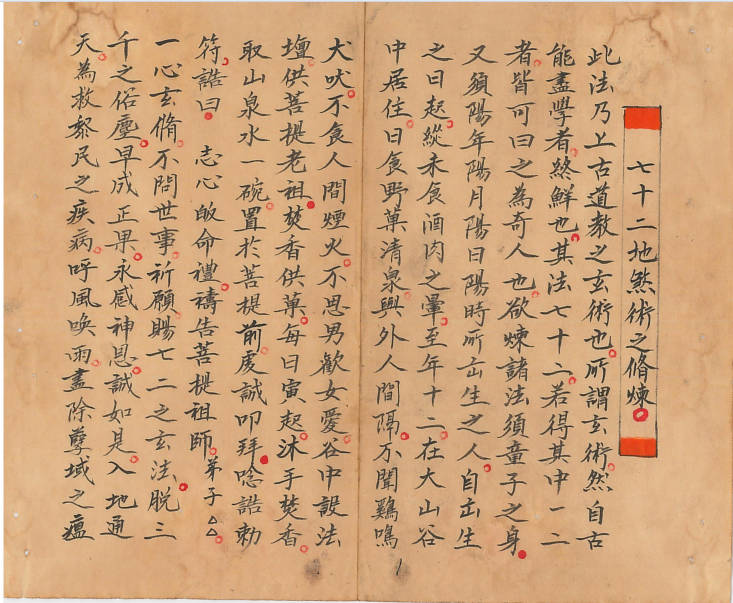 七十二地煞術之脩煉
此法乃上古道教之玄術也所謂玄術然自古
能盡學者終鮮也其法七十二若得其中一二
者皆可曰之為奇人也欲煉諸法須童子之身
又須陽年陽月陽日陽時所出生之人自出生
之日起縱未食酒肉之暈至年十二在大山谷
中居住日食野菓清泉與外人間隔不聞鷄鳴
犬吠不食人間煙火不思男歡女愛谷中設法
壇供菩提老祖焚香供菓每日寅起沐手焚香
取山泉水一碗置於菩提前虔誠叩拜唸誥勅
符誥曰 志心皈命禮禱告菩提祖師弟子△△
一心玄脩不問世事祈願賜七二之玄法脱三
千之俗塵早成正果永感神恩誠如是入地通
天為救黎民之疾病呼風喚雨盡除孽域之瘟